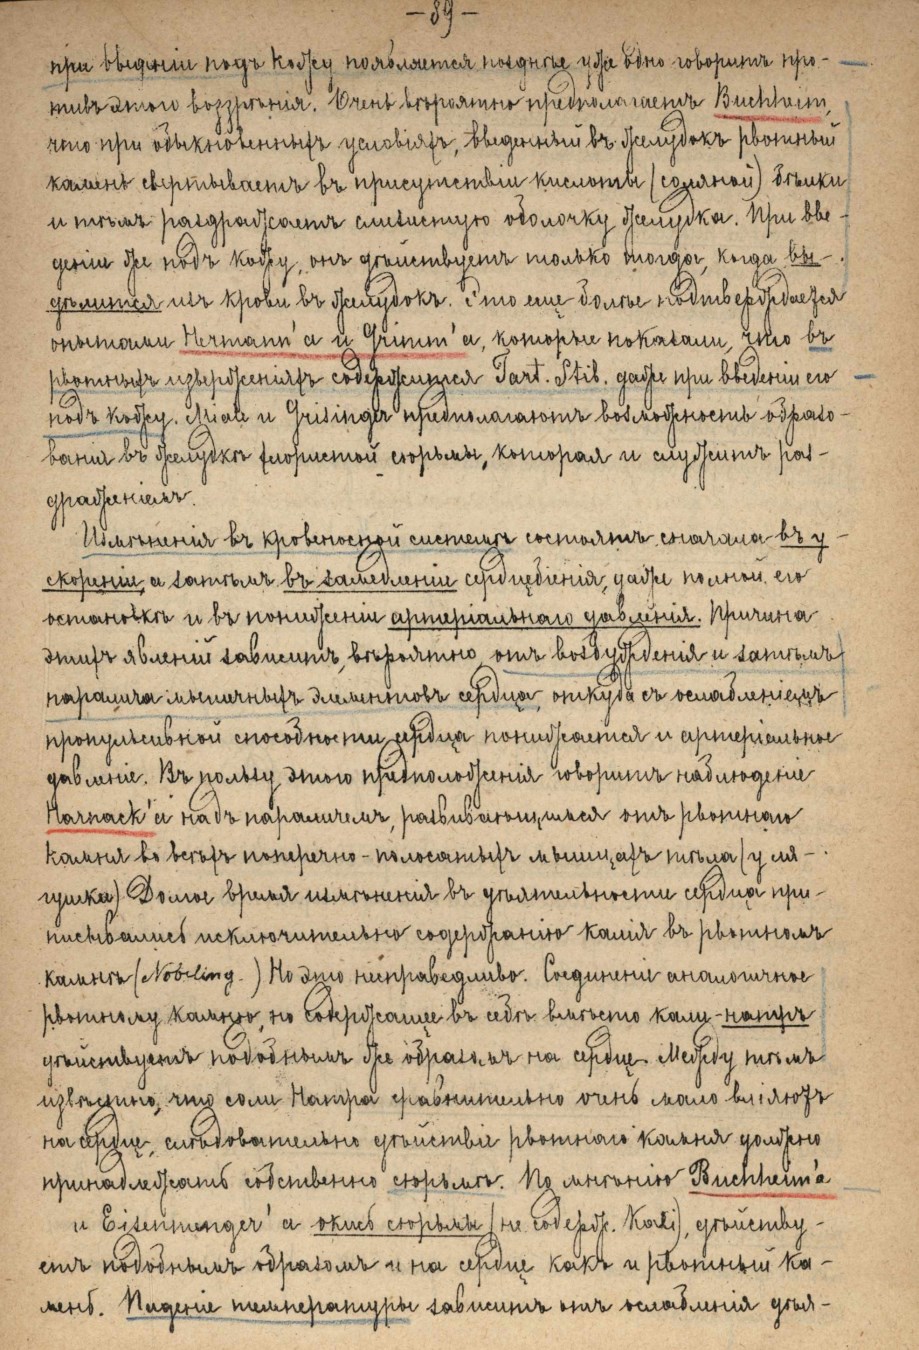 — 89 —
при введеніи подъ кожу появляется позднѣе уже одно говоритъ про-
тивъ этого воззрѣнія. Очень вѣроятно предполагаетъ Buchheim,
что при обыкновенныхъ условіяхъ, введенный въ желудокъ рвотный
камень свертываетъ въ присутствіи кислоты (соляной) бѣлки
и тѣмъ раздражаетъ слизистую оболочку желудка. При вве-
деніи же подъ кожу, онъ дѣйствуетъ только тогда, когда вы-
дѣлится изъ крови въ желудокъ. Это еще болѣе подтверждается
опытами Hermann'а и Grimm'а, которые показали, что въ
рвотныхъ изверженіяхъ содержится Tart. Stib. даже при введеніи его
подъ кожу. Miale и Grisinger предполагаютъ возможность образо-
ванія въ желудкѣ хлористой сюрьмы, которая и служитъ раз-
драженіемъ.
Измѣненія въ кровеносной системѣ состоятъ сначала въ у-
скореніи, а затѣмъ въ замедленіи сердцебіенія, даже полной его
остановкѣ и въ пониженіи артеріальнаго давленія. Причина
этихъ явленій зависитъ, вѣроятно, отъ возбужденія и затѣмъ
паралича мышечныхъ элементовъ сердца, откуда съ ослабленіемъ
пропульсивной способности сердца понижается и артеріальное
давленіе. Въ пользу этого предположенія говоритъ наблюденіе
Harnack'а надъ параличемъ, развивающимся отъ рвотнаго
камня во всѣхъ поперечно-полосатыхъ мышцахъ тѣла (у ля-
гушки) Долгое время измѣненія въ дѣятельности сердца при-
писывались исключительно содержанію калія въ рвотномъ
камнѣ (Nobiling.) Но это несправедливо. Соединеніе аналогичное
рвотному камню, но содержащее въ себѣ вмѣсто кали-натръ
дѣйствуетъ подобнымъ же образомъ на сердце. Между тѣмъ
извѣстно, что соли Натра сравнительно очень мало вліяютъ
на сердце, слѣдовательно дѣйствіе рвотнаго камня должно
принадлежать собственно сюрьмѣ. По мнѣнію Buchheim'а
и Eisenmenger'а окись сюрьмы (не содерж. Kali), дѣйству-
етъ подобнымъ образомъ и на сердце какъ и рвотный ка-
мень. Паденіе температуры зависитъ отъ ослабленія дѣя-